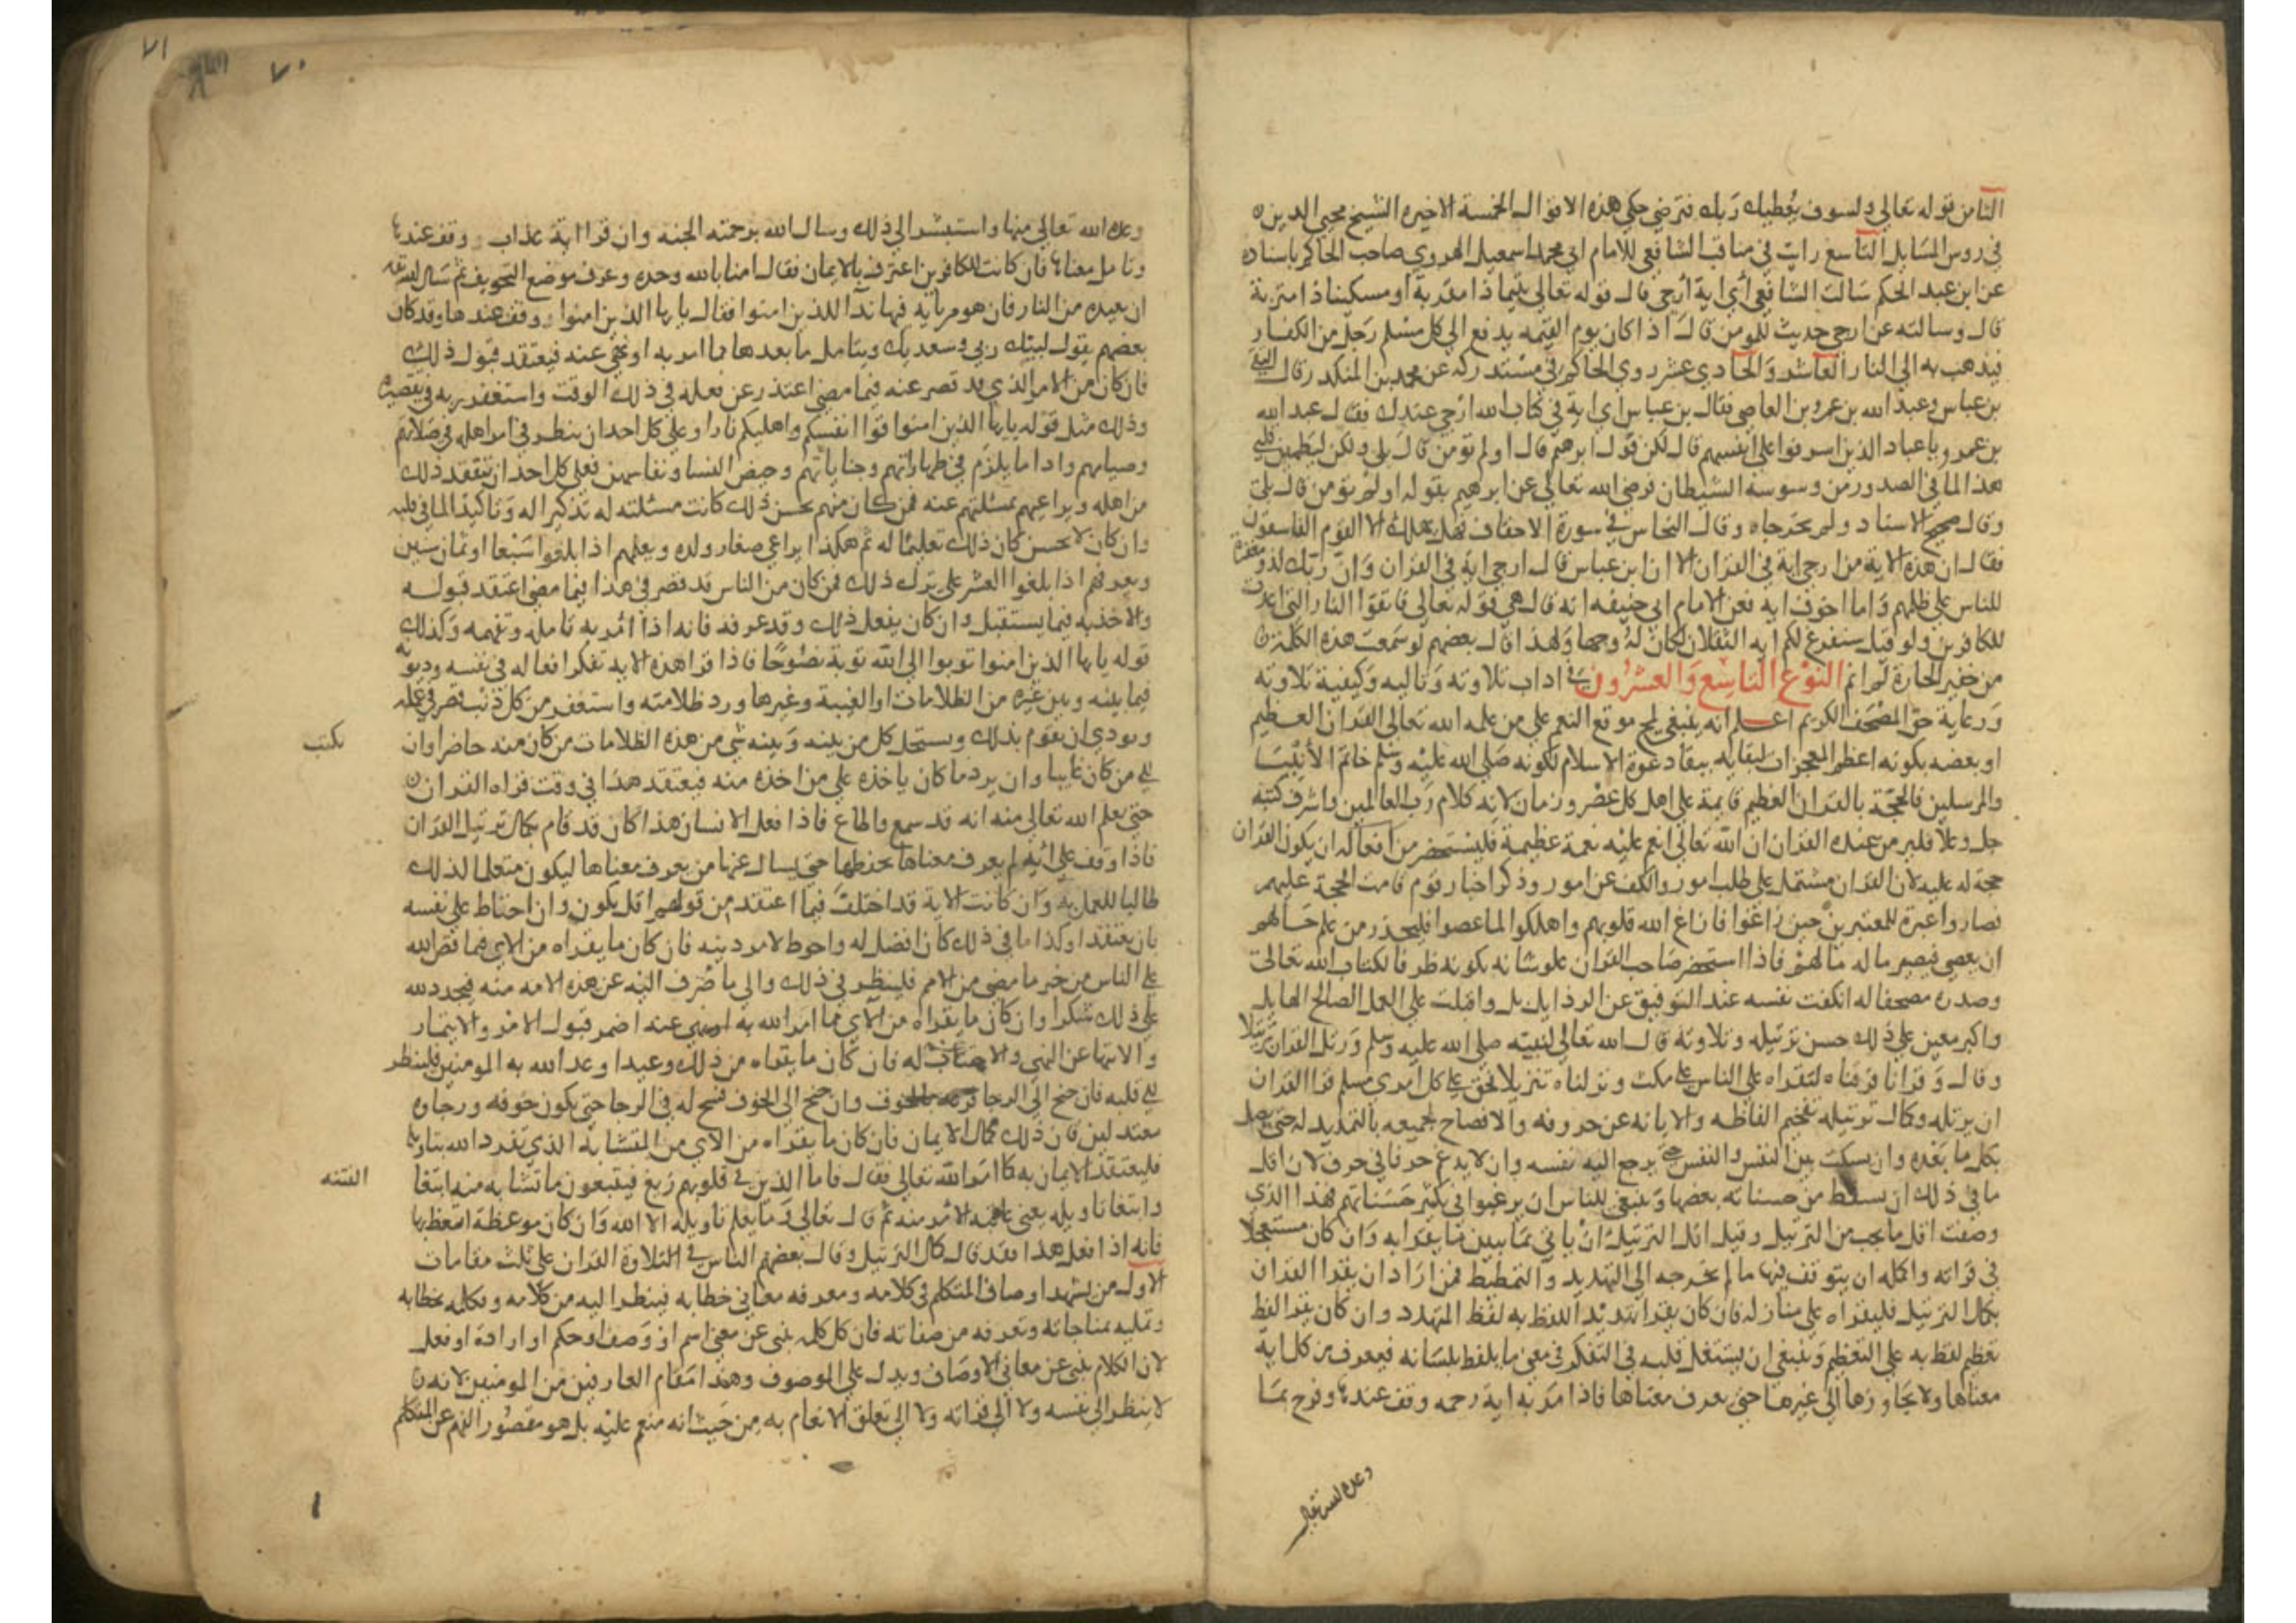 الثامن قوله تعالى ولسوف يعطيك ربك فترضى حكي هذه الاقوال الخمسة الاخيره الشيخ محيي الدين
في روس المسايل التاسع رايت في مناقب الشافعي للامام ابي محمد اسمعيل الهروي صاحب الحاكم باسناده
عن ابن عبد الحكم سالت الشافعي أي اية أرجى قال قوله تعالى يتيما ذا مقربة او مسكينا ذا متربة
قال وسالته عن ارجي حديث للمومن قال اذا كان يوم القيمه يدفع الى كل مسلم رجل من الكفار
فيذهب به الى النار العاشر والحادي عشر روي الحاكم في مستدركه عن محمد بن المنكدر قال التقى
بن عباس وعبد الله بن عمرو بن العاصي فقال بن عباس اي اية في كتاب الله ارجي عندك فقال عبد الله
بن عمرو يا عباد الذين اسرفوا على انفسهم قال لكن قول ابرهيم قال اولم تومن قال بلى ولكن ليطمين قلبي
هذا لما في الصدور من وسوسة الشيطان فرضي الله تعالى عن ابرهيم بقوله اولم تومن قال بلى
وقال صحيح الاسناد ولم يخرجاه وقال النحاس في سورة الاحقاف فهل يهلك الا القوم الفاسقون
فقال ان هذه الاية من ارجى اية في القران الا ان ابن عباس قال ارجى اية في القران وان ربك لذو مغفرة
للناس على ظلمهم واما اخوف اية فعن الامام ابي حنيفه انه قال هي قوله تعالى فاتقوا النار التي اعدت
للكافرين ولو قيل سنفرغ لكم ايه الثقلان لكان له وجها ولهذا قال بعضهم لو سمعت هذه الكلمة
من خفير الحارة لم انم النوع التاسع والعشرون في اداب تلاوته وتاليه وكيفية تلاوته
ورعاية حق المصحف الكريم اعلم انه ينبغي لمح موقع النعم على من علمه الله تعالى القران العظيم
او بعضه بكونه اعظم المعجزات لبقايه ببقا دعوة الاسلام لكونه صلى الله عليه وسلم خاتم الانبيا
والمرسلين فالحجة بالقران العظيم قايمة على اهل كل عصر وزمان لانه كلام رب العالمين واشرف كتبه
جل وعلا فلير من عنده القران ان الله تعالى انعم عليه نعمة عظيمة فليستحضر من افعاله ان يكون القران
حجة له عليه لان القران مشتمل على طلب امور والكف عن امور وذكر اخبار قوم قامت الحجة عليهم
فصاروا عبرة للمعتبرين حين زاغوا فازاغ الله قلوبهم واهلكوا لما عصوا فليحذر من علم حالهم
ان يعصي فيصير ماله مالهم فاذا استحضر صاحب القران علو شانه بكونه ظرفا لكتاب الله تعالى
وصدره مصحفا له انكفت نفسه عند التوفيق عن الرذايل بل واقبلت على العمل الصالح الهايل
واكبر معين على ذلك حسن ترتيله وتلاوته قال الله تعالى لنبيه صلى الله عليه وسلم ورتل القران ترتيلا
وقال وقرانا فرقناه لتقراه على الناس على مكث ونزلناه تنزيلا فحق على كل امري مسلم قرا القران
ان يرتله وكمال ترتيله تفخيم الفاظه والابانه عن حروفه والافصاح لجميعه بالتمديد له حتى يصل
بكل ما بعده وان يسكت بين النفس والنفس حتى يرجع اليه نفسه وان لا يدغم حرفا في حرف لان اقل
ما في ذلك ان يسقط من حسناته بعضها وينبغي للناس ان يرغبوا في تكثير حسناتهم فهذا الذي
وصفت اقل ما يجب من الترتيل وقيل اقل الترتيل ان ياتي بما يبين ما يقرا به وان كان مستعجلا
في قراته واكمله ان يتوقف فيها ما لم يخرجه الى التهديد والتمطيط فمن اراد ان يقرا القران
بكمال الترتيل فليقراه على منازله فان كان يقرا تهديدا لفظ به لفظ المتهدد وان كان يقرا لفظ
تعظيم لفظ به على التعظيم وينبغي ان يشتغل قلبه في التفكر في معنى ما يلفظ بلسانه فيعرف من كل اية
معناها ولا يجاوزها الى غيرها حتى يعرف معناها فاذا مر به اية رحمه وقف عندها وفرح بما
وعده الله تعالى
٧١
٧٠
وعده الله تعالى منها واستبشر الى ذلك وسال الله برحمته الجنه وان قرا اية عذاب وقف عندها
وتامل معناها فان كانت للكافرين اعترف بالايمان فقال امنا بالله وحده وعرف موضع التخويف ثم سال الله تعالى
ان يعيده من النار فان هو مر باية فيها ندا للذين امنوا فقال يا ايها الذين امنوا وقف عندها وقد كان
بعضهم يقول لبيك ربي وسعديك ويتامل ما بعدها مما امر به او نهي عنه فيعتقد قبول ذلك
فان كان من الامر الذي قد قصر عنه فيما مضى اعتذر عن فعله في ذلك الوقت واستغفر ربه في تقصيره
وذلك مثل قوله يا ايها الذين امنوا قوا انفسكم واهليكم نارا وعلى كل احد ان ينظر في امر اهله في صلاتهم
وصيامهم واداما يلزم في طهاراتهم وجناياتهم وحيض النسا ونفاسهن فعلى كل احد ان يتفقد ذلك
من اهله ويراعيهم بمسئلتهم عنه فمن كان منهم يحسن ذلك كانت مسئلته له تذكيرا له وتاكيدا لما في قلبه
وان كان لا يحسن كان ذلك تعليما له ثم هكذا يراعي صغار ولده ويعلمهم اذا بلغوا سبعا او ثمان سنين
ويعرفهم اذا بلغوا العشر على ترك ذلك فمن كان من الناس قد قصر في هذا فيما مضى اعتقد قبوله
والاخذ به فيما يستقبل وان كان يفعل ذلك وقد عرفه فانه اذا مر به تامله وتفهمه وكذلك
قوله يا ايها الذين امنوا توبوا الى الله توبة نصوحا فاذا قرا هذه الاية تفكر افعاله في نفسه وذنوبه
فيما بينه وبين غيره من الظلامات او الغيبة وغيرها ورد ظلامته واستغفر من كل ذنب قصر في عمله
ونودي ان يقوم بذلك ويستحل كل من بينه وبينه شي من هذه الظلامات من كان منه حاضرا وان
يكتب
الى من كان غايبا وان يرد ما كان ياخذه على من اخذه منه فيعتقد هذا في وقت قراه القران
حتى يعلم الله تعالى منه انه قد سمع واطاع فاذا فعل الانسان هذا كان قد قام بكمال ترتيل القران
فاذا وقف على اية لم يعرف معناها يحفظها حتى يسال عنها من يعرف معناها ليكون متعلما لذلك
طالبا للعمل به وان كانت الاية قد اختلف فيها اعتقد من قولهم اقل يكون وان احتاط على نفسه
بان يعتقد اوكد ما في ذلك كان افضل له واحوط لامر دينه فان كان ما يقراه من الاي فيما قص الله
على الناس من خبر ما مضى من الامم فلينظر في ذلك والى ما صرف الله عن هذه الامه منه فيجدد لله
على ذلك شكرا وان كان ما يقراه من الاي مما امر الله به او نهى عنه اضمر قبول الامر والايتمار
والانتها عن النهي والاجتناب له فان كان ما يقراه من ذلك وعيدا وعد الله به المومنين فلينظر
الى قلبه فان جنح الى الرجا فزعه بالخوف وان جنح الى الخوف فسح له في الرجا حتى يكون خوفه ورجاوه
معتدلين فان ذلك كمال الايمان فان كان ما يقراه من الاي من المتشابه الذي تفرد الله بتاويله
فليعتقد الايمان به كما امر الله تعالى فقال فاما الذين في قلوبهم زيغ فيتبعون ما تشابه منه ابتغا
الفتنه
وابتغا تاويله يعني عاقبة الامر منه ثم قال تعالى وما يعلم تاويله الا الله وان كان موعظة اتعظ بها
فانه اذا فعل هذا فقد قال كمال الترتيل وقال بعضهم الناس في التلاوة القران على ثلث مقامات
الاول من يشهد اوصاف المتكلم في كلامه ومعرفه معاني خطابه فينظر اليه من كلامه وتكلمه بخطابه
وتمليه بمناجاته وتعرفه من صفاته فان كل كلمه تنبى عن معنى اسم او وصف او حكم او اراده او فعل
لان الكلام ينبى عن معاني الاوصاف ويدل على الموصوف وهذا مقام العارفين من المومنين لانه
لا ينظر الى نفسه ولا الى قراته ولا الى تعلق الانعام به من حيث انه منعم عليه بل هو مقصور الفهم عن المتكلم